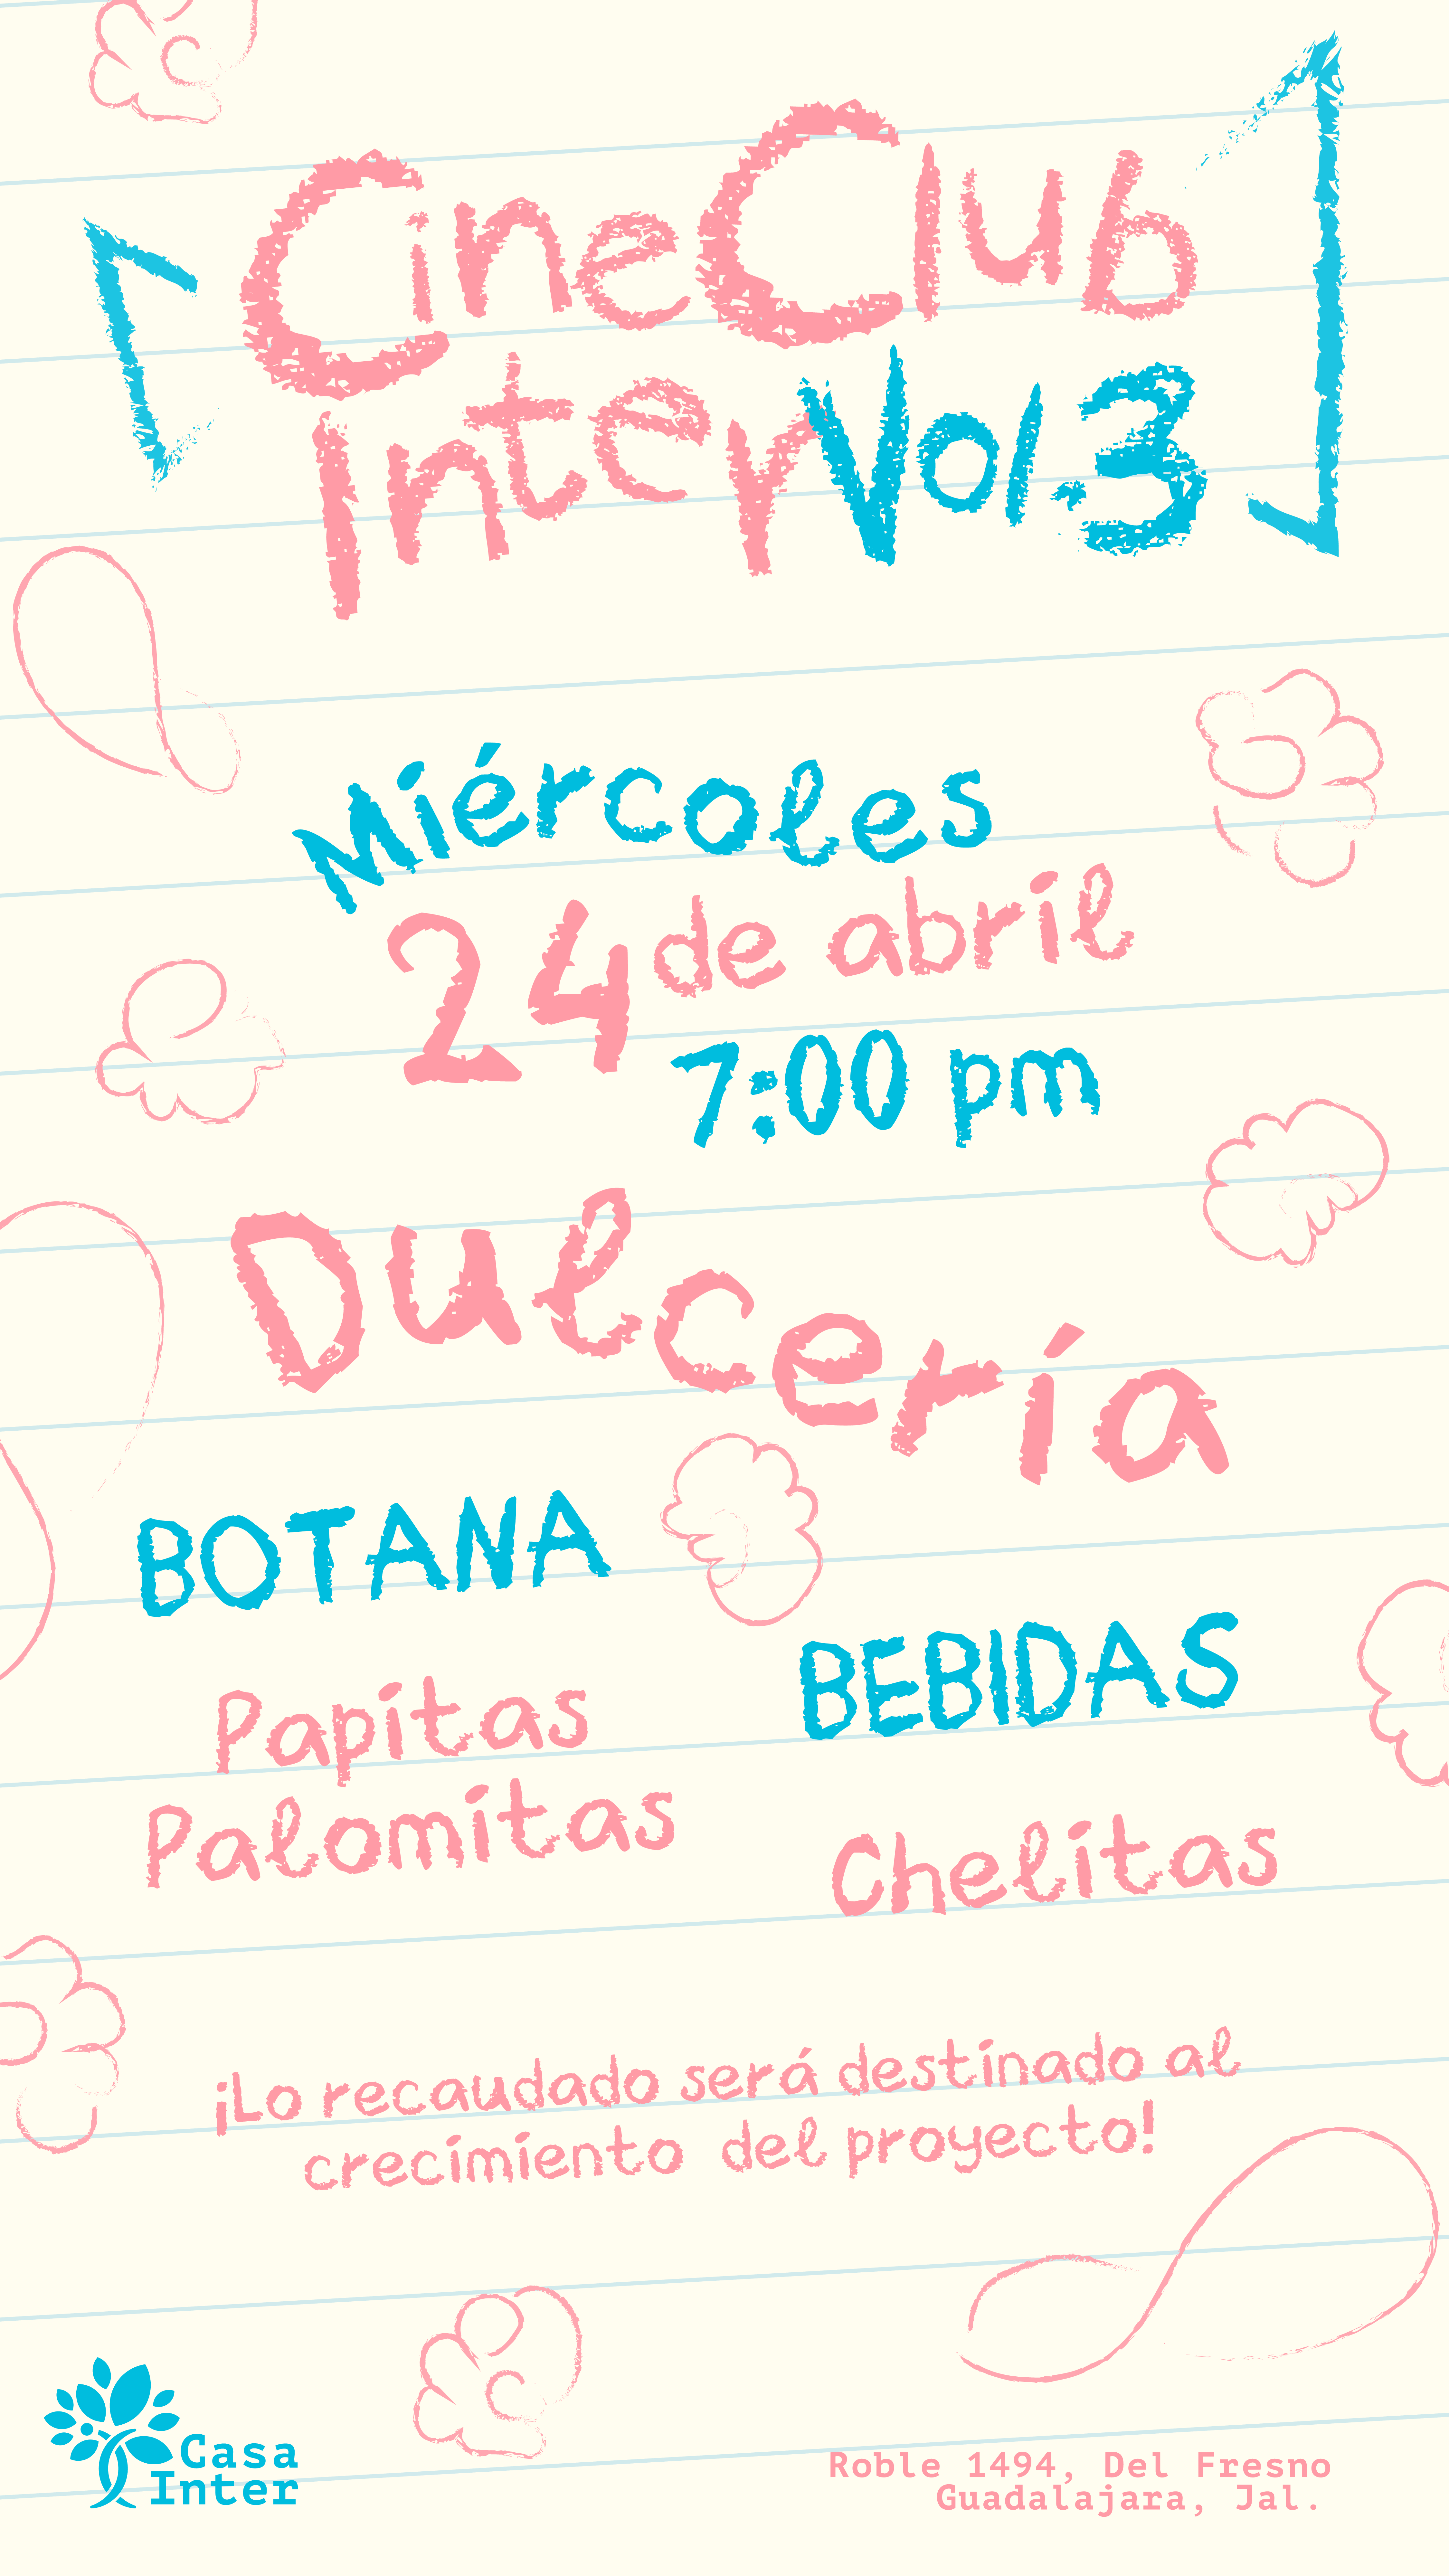 CineClub
Inter Vol.3
Miércoles
24 de abril
7:00 pm
Dulcería
BOTANA
Papitas
Palomitas
BEBIDAS
Chelitas
¡Lo recaudado será destinado al
crecimiento del proyecto!
Casa
Inter
Roble 1494, Del Fresno
Guadalajara, Jal.